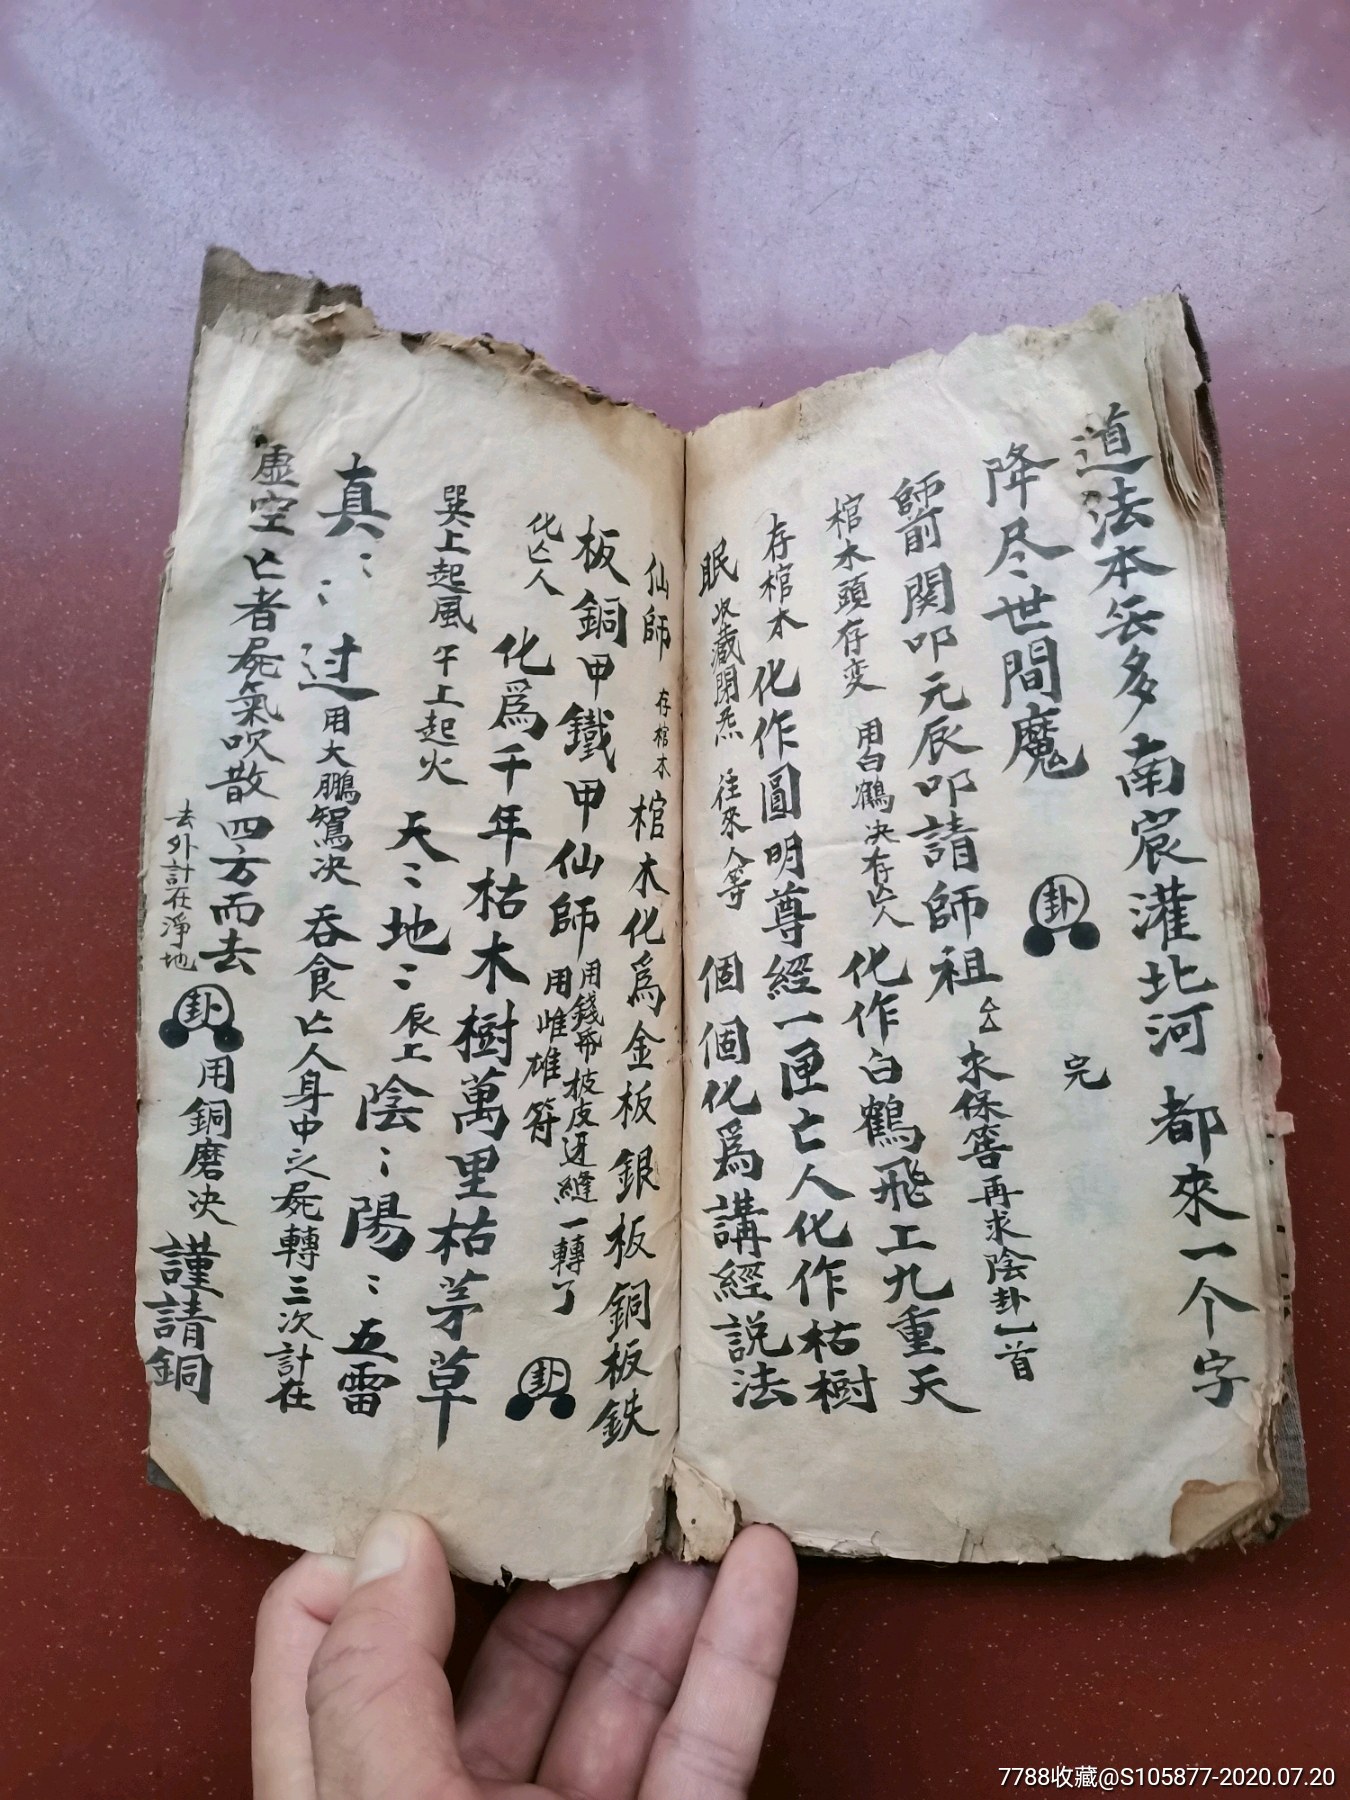 道法本无多南宸灌北河都來一个字
降尽世間魔 卦 完
師前関叩元辰叩請師祖 求保窖再求陰卦一首
棺木頭存変 用白鶴决存亡人 化作白鶴飛上九重天
存棺木 化作圓明尊經一匣亡人化作枯樹
眠收藏閉炁 往來人等 個個化為講經説法
仙師 存棺木 棺木化為金板銀板銅板鉄
板銅甲鐵甲仙師 用錢帋披皮迓縫一轉了
用雌雄符 卦
化亡人 化為千年枯木樹萬里枯茅草
巽上起風午上起火 天：地：辰上 陰：陽：五雷
真：：过 用大鵬鴛决 吞食亡人身中之屍轉三次計在
虚空亡者屍氣吹散四方而去
去外計在淨地 卦 用銅磨决 謹請銅
7788收藏@S105877-2020.07.20